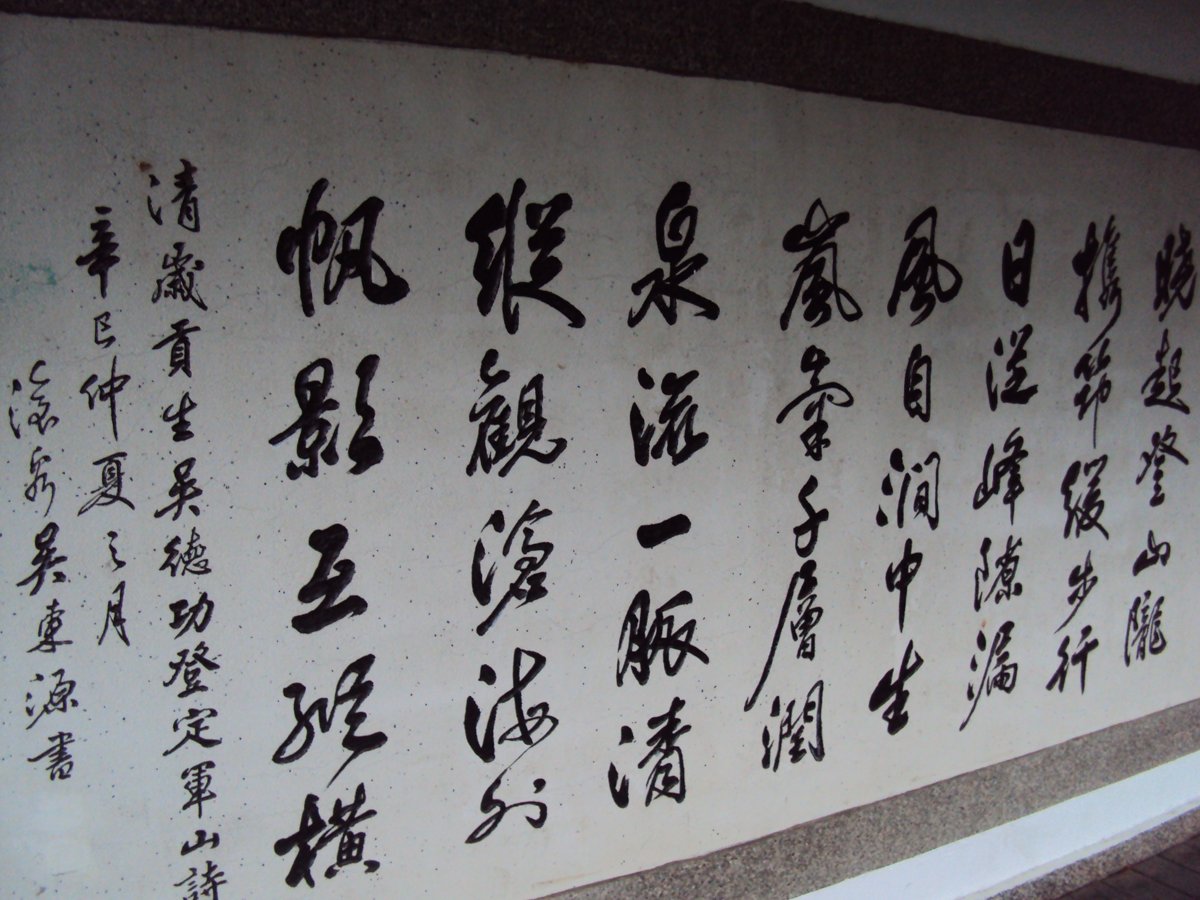 曉起登山隴
攜筇緩步行
日從峰隙漏
風自澗中生
嵐氣千層潤
泉滋一脈清
縱觀滄海外
帆影互縱橫
清歲貢生吳德功登定軍山詩
辛巳仲夏之月
滋秀吳東源書